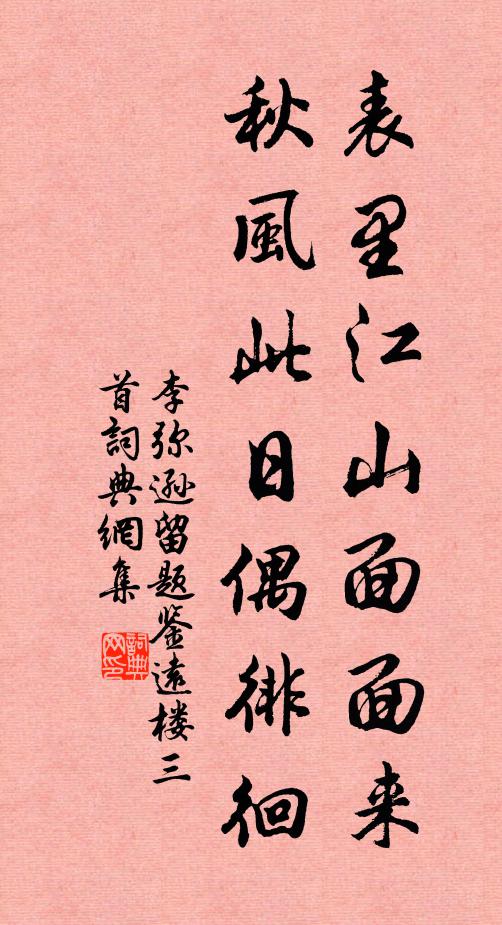 表里江山面面来
秋風此日偶徘徊
李弥遜留题鉴遠楼三
首詞典網集
詞典
网印